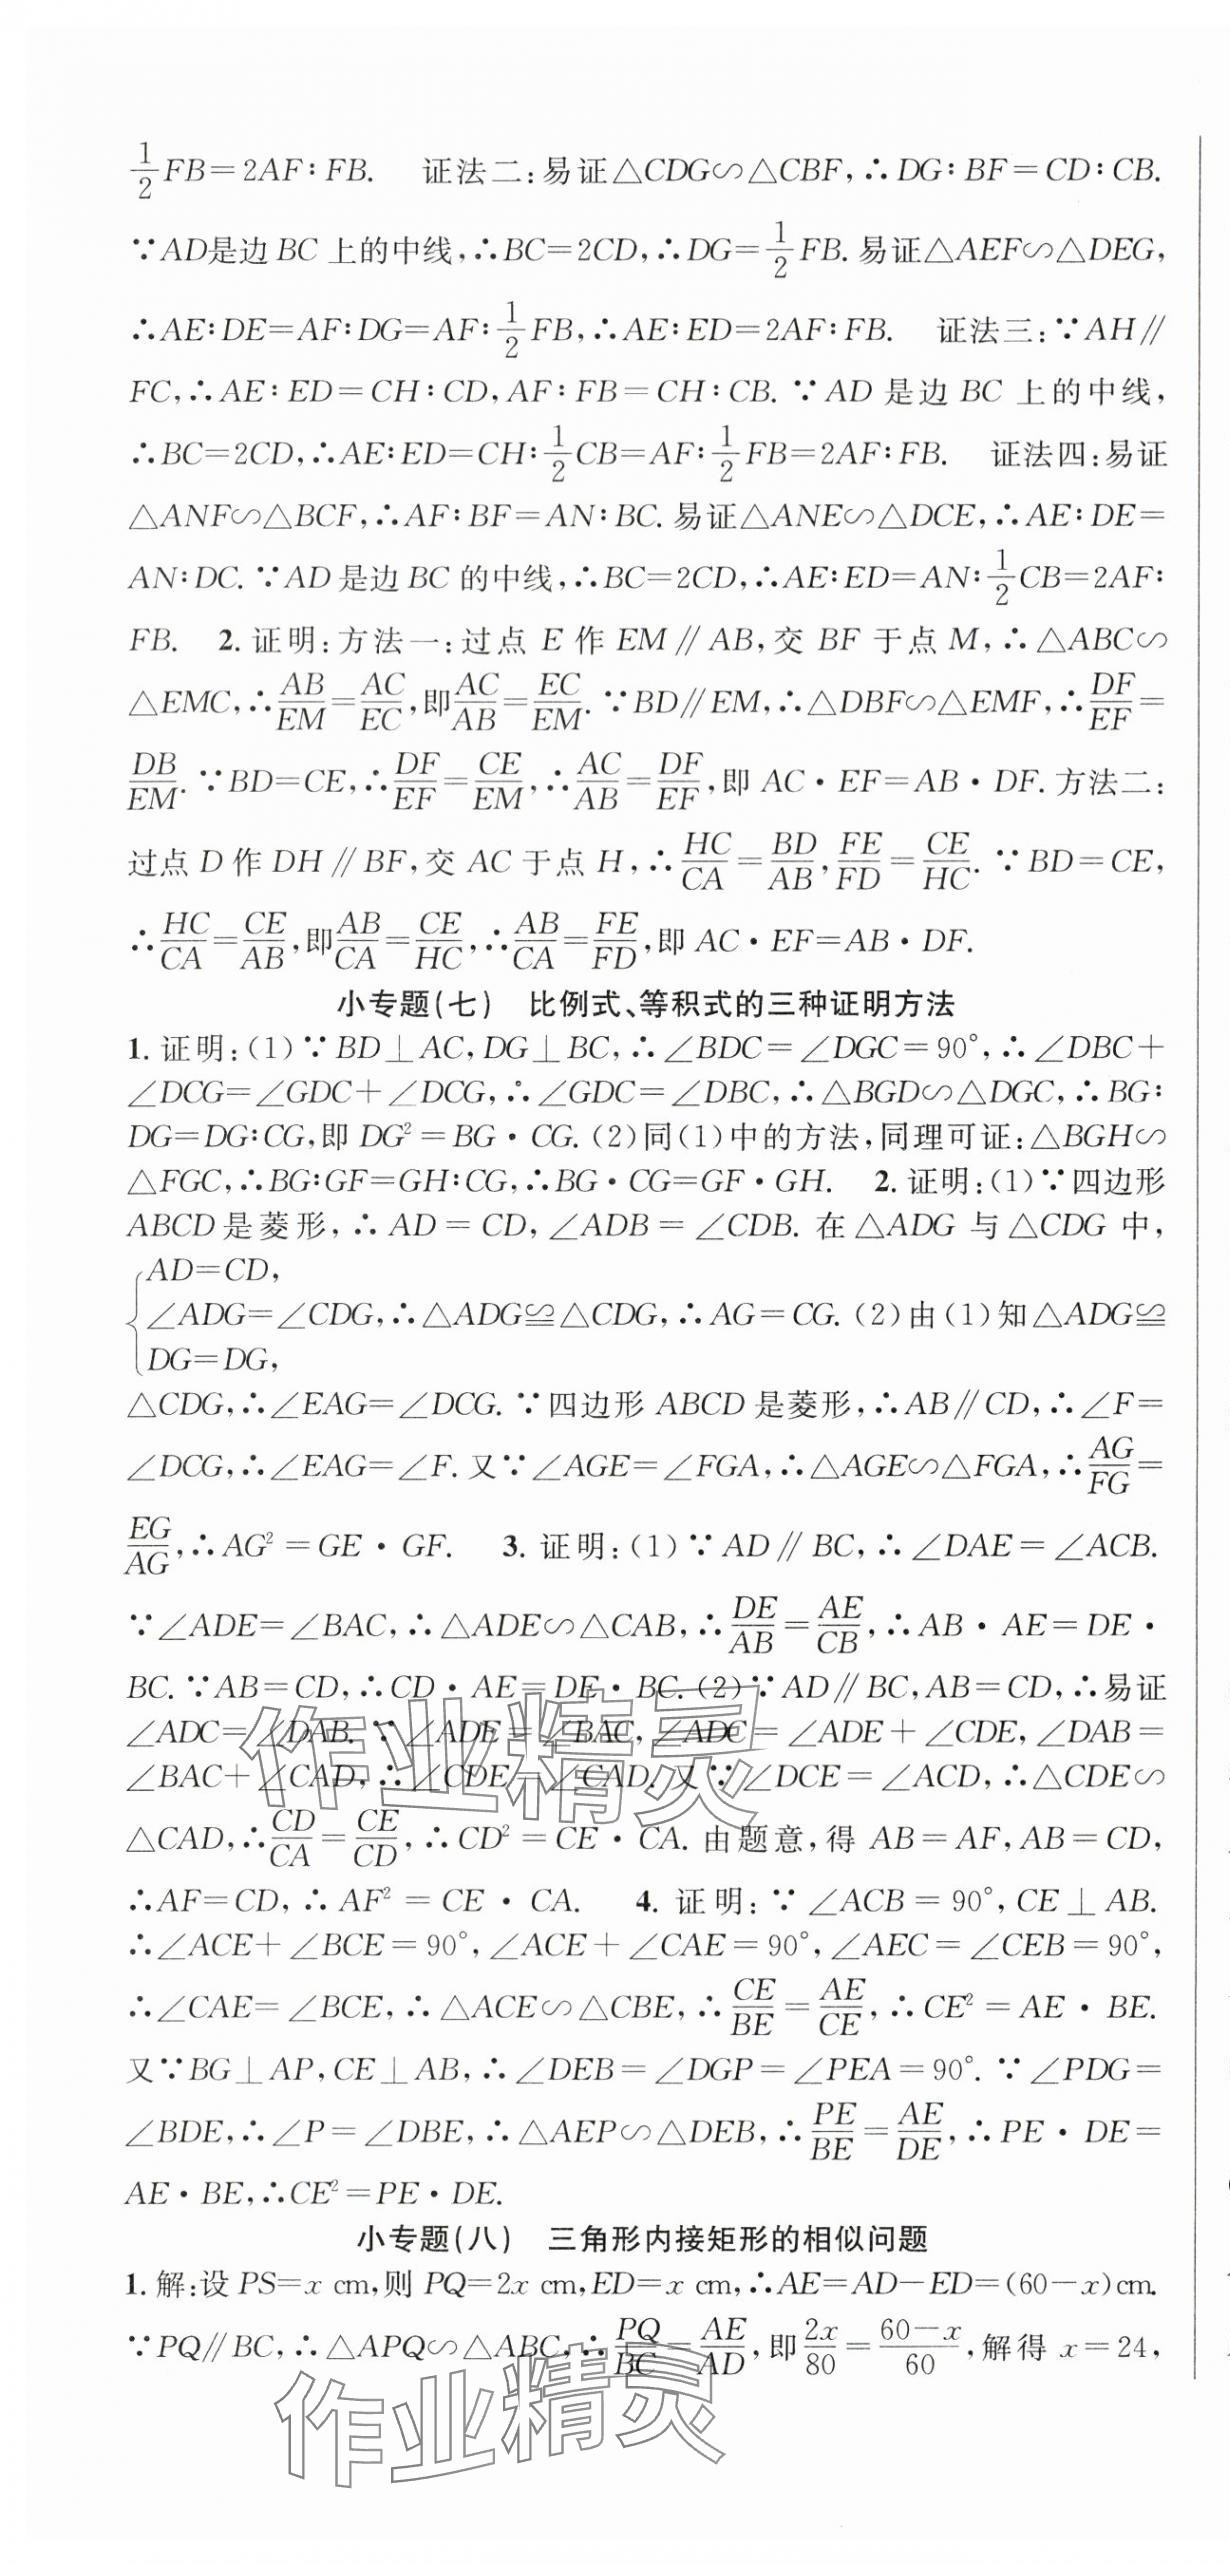 1/2 FB=2AF∶FB. 证法二:易证△CDG∽△CBF,∴DG∶BF=CD∶CB.
∵AD是边 BC 上的中线,∴BC=2CD,∴DG=1/2 FB. 易证△AEF∽△DEG,
∴AE∶DE=AF∶DG=AF∶1/2 FB,∴AE∶ED=2AF∶FB. 证法三:∵AH∥
FC,∴AE∶ED=CH∶CD,AF∶FB=CH∶CB. ∵AD 是边 BC 上的中线,
∴BC=2CD,∴AE∶ED=CH∶1/2 CB=AF∶1/2 FB=2AF∶FB. 证法四:易证
△ANF∽△BCF,∴AF∶BF=AN∶BC. 易证△ANE∽△DCE,∴AE∶DE=
AN∶DC. ∵AD 是边 BC 的中线,∴BC=2CD,∴AE∶ED=AN∶1/2 CB=2AF∶
FB. 2. 证明:方法一:过点 E 作 EM∥AB,交 BF 于点 M,∴△ABC∽
△EMC,∴AB/EM=AC/EC,即AC/AB=EC/EM. ∵BD∥EM,∴△DBF∽△EMF,∴DF/EF=
DB/EM. ∵BD=CE,∴DF/EF=CE/EM,∴AC/AB=DF/EF,即 AC·EF=AB·DF. 方法二:
过点 D 作 DH∥BF,交 AC 于点 H,∴HC/CA=BD/AB,FE/FD=CE/HC. ∵BD=CE,
∴HC/CA=CE/AB,即AB/CA=CE/HC,∴AB/CA=FE/FD,即 AC·EF=AB·DF.
小专题(七) 比例式、等积式的三种证明方法
1. 证明:(1)∵BD⊥AC,DG⊥BC,∴∠BDC=∠DGC=90°,∴∠DBC+
∠DCG=∠GDC+∠DCG,∴∠GDC=∠DBC,∴△BGD∽△DGC,∴BG∶
DG=DG∶CG,即 DG²=BG·CG. (2)同(1)中的方法,同理可证:△BGH∽
△FGC,∴BG∶GF=GH∶CG,∴BG·CG=GF·GH. 2. 证明:(1)∵四边形
ABCD 是菱形,∴AD=CD,∠ADB=∠CDB. 在△ADG 与△CDG 中,
{AD=CD,
∠ADG=∠CDG,∴△ADG≌△CDG,∴AG=CG. (2)由(1)知△ADG≌
DG=DG,
△CDG,∴∠EAG=∠DCG. ∵四边形 ABCD 是菱形,∴AB∥CD,∴∠F=
∠DCG,∴∠EAG=∠F. 又∵∠AGE=∠FGA,∴△AGE∽△FGA,∴AG/FG=
EG/AG,∴AG²=GE·GF. 3. 证明:(1)∵AD∥BC,∴∠DAE=∠ACB.
∵∠ADE=∠BAC,∴△ADE∽△CAB,∴DE/AB=AE/CB,∴AB·AE=DE·
BC. ∵AB=CD,∴CD·AE=DE·BC. (2)∵AD∥BC,AB=CD,∴易证
∠ADC=∠DAB. ∵∠ADE=∠BAC,∠ADC=∠ADE+∠CDE,∠DAB=
∠BAC+∠CAD,∴∠CDE=∠CAD. 又∵∠DCE=∠ACD,∴△CDE∽
△CAD,∴CD/CA=CE/CD,∴CD²=CE·CA. 由题意,得 AB=AF,AB=CD,
∴AF=CD,∴AF²=CE·CA. 4. 证明:∵∠ACB=90°,CE⊥AB.
∴∠ACE+∠BCE=90°,∠ACE+∠CAE=90°,∠AEC=∠CEB=90°,
∴∠CAE=∠BCE,∴△ACE∽△CBE,∴CE/BE=AE/CE,∴CE²=AE·BE.
又∵BG⊥AP,CE⊥AB,∴∠DEB=∠DGP=∠PEA=90°. ∵∠PDG=
∠BDE,∴∠P=∠DBE,∴△AEP∽△DEB,∴PE/BE=AE/DE,∴PE·DE=
AE·BE,∴CE²=PE·DE.
小专题(八) 三角形内接矩形的相似问题
1. 解:设 PS=x cm,则 PQ=2x cm,ED=x cm,∴AE=AD−ED=(60−x)cm.
∵PQ∥BC,∴△APQ∽△ABC,∴PQ/BC=AE/AD,即2x/80=(60−x)/60,解得 x=24,
作业精灵
作业精灵